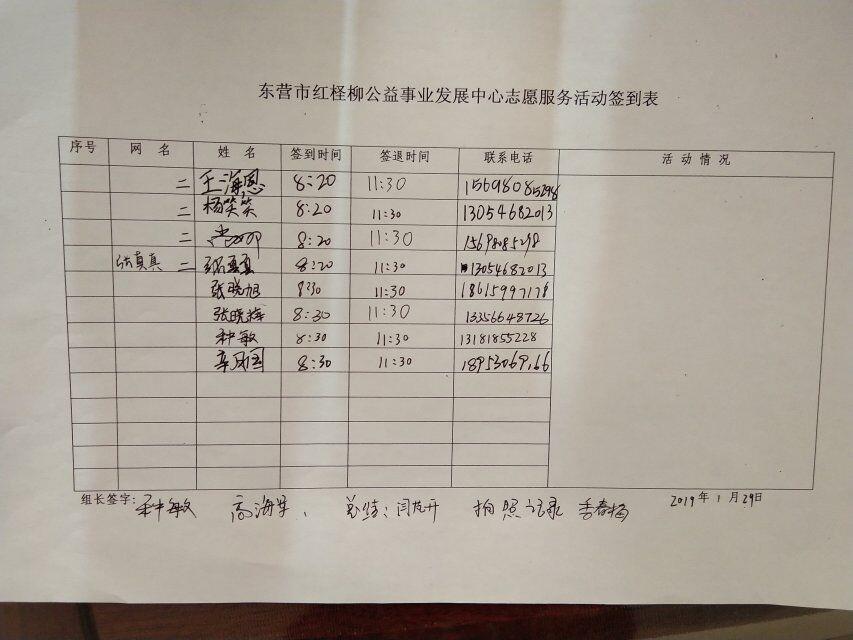 东营市红柽柳公益事业发展中心志愿服务活动签到表
序号 网 名 姓 名 签到时间 签退时间 联系电话 活 动 情 况
二 王海恩 8:20 11:30 15698085298
二 杨笑笑 8:20 11:30 13054682013
二 8:20 11:30 15698085298
真真 二 8:20 11:30 13054682013
张晓旭 8:30 11:30 18615997178
张晓辉 8:30 11:30 13356648726
种敏 8:30 11:30 13181855228
辛国 8:30 11:30 18953069166
组长签字: 种敏 高海军、 总结: 闫芃开 拍照记录 季春杨 2019年1月29日